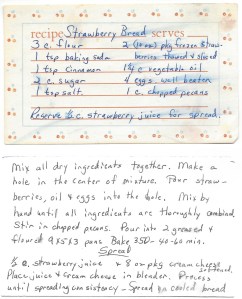 recipe Strawberry Bread serves
3 c. flour
1 tsp baking soda
1 tsp cinnamon
2 c. sugar
1 tsp salt
2 (10 oz) pkg frozen straw-
berries thawed & sliced
1¼ c vegetable oil
4 eggs, well beaten
1 c. chopped pecans
Reserve ½ c. strawberry juice for spread.
Mix all dry ingredients together. Make a
hole in the center of mixture. Pour straw-
berries, oil & eggs into the hole. Mix by
hand until all ingredients are thoroughly combined.
Stir in chopped pecans. Pour into 2 greased &
floured 9x5x3 pans Bake 350- 40-60 min.
Spread
½ c. strawberry juice & 8 oz pkg cream cheese
softened.
Place juice & cream cheese in blender. Process
until spreading consistency - Spread on cooled bread